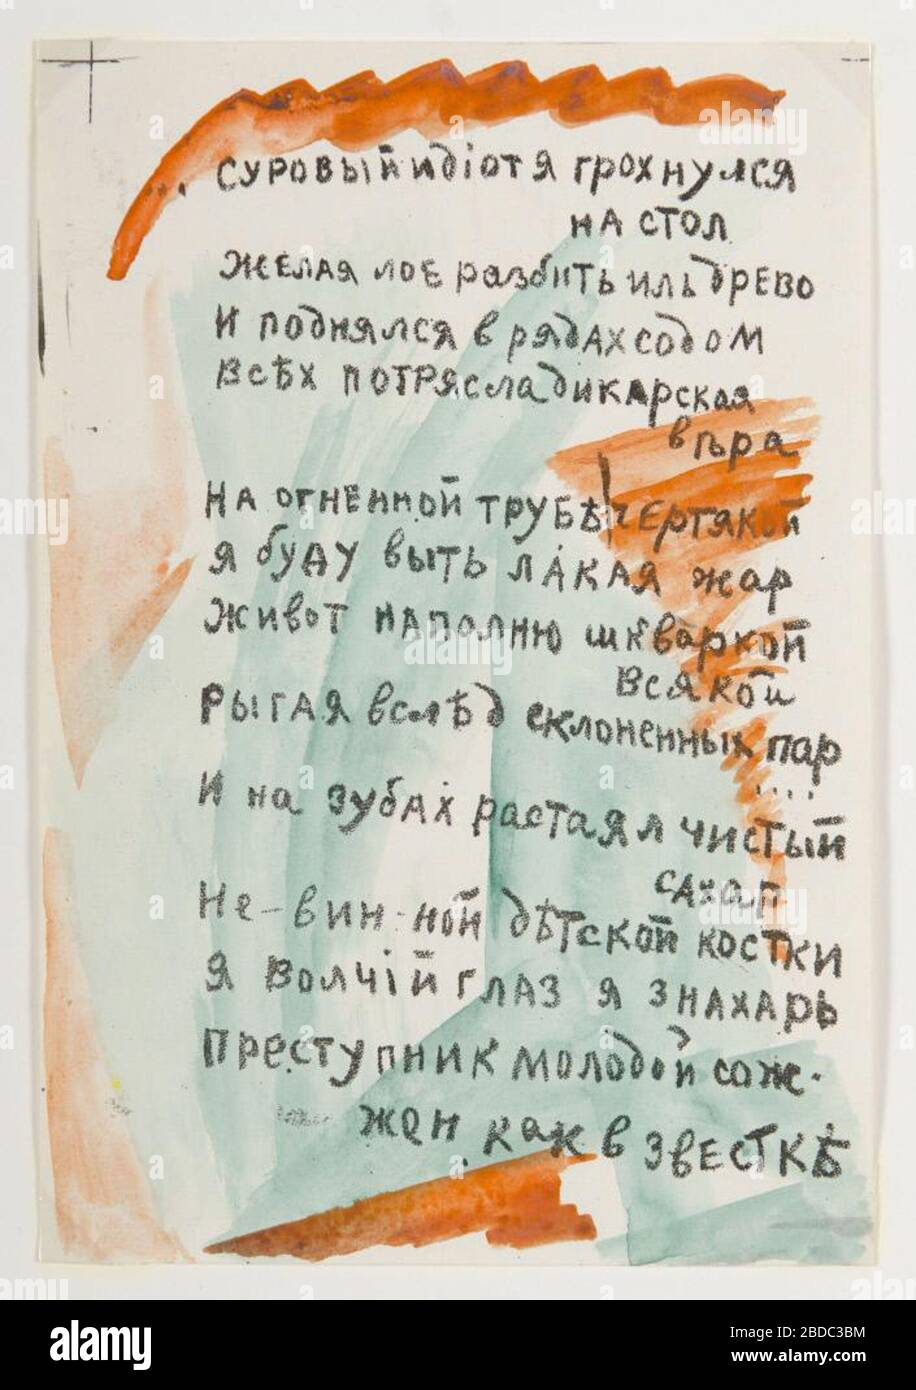 ...суровый идіот я грохнулся
на стол
желая лоб разбить иль древо
и поднялся в рядах содом
всѣх потрясла дикарская
вѣра
на огненной трубѣ чертякой
я буду выть лáкая жар
живот наполню шкваркой
всякой
рыгая вслѣд склоненных пар
....
и на зубах растаял чистый
сахар
Не-вин-ной дѣтской костки
я волчій глаз я знахарь
преступник молодой сож-
жен как в звесткѣ
alamy
a
Image ID: 2BDC3BM
www.alamy.com